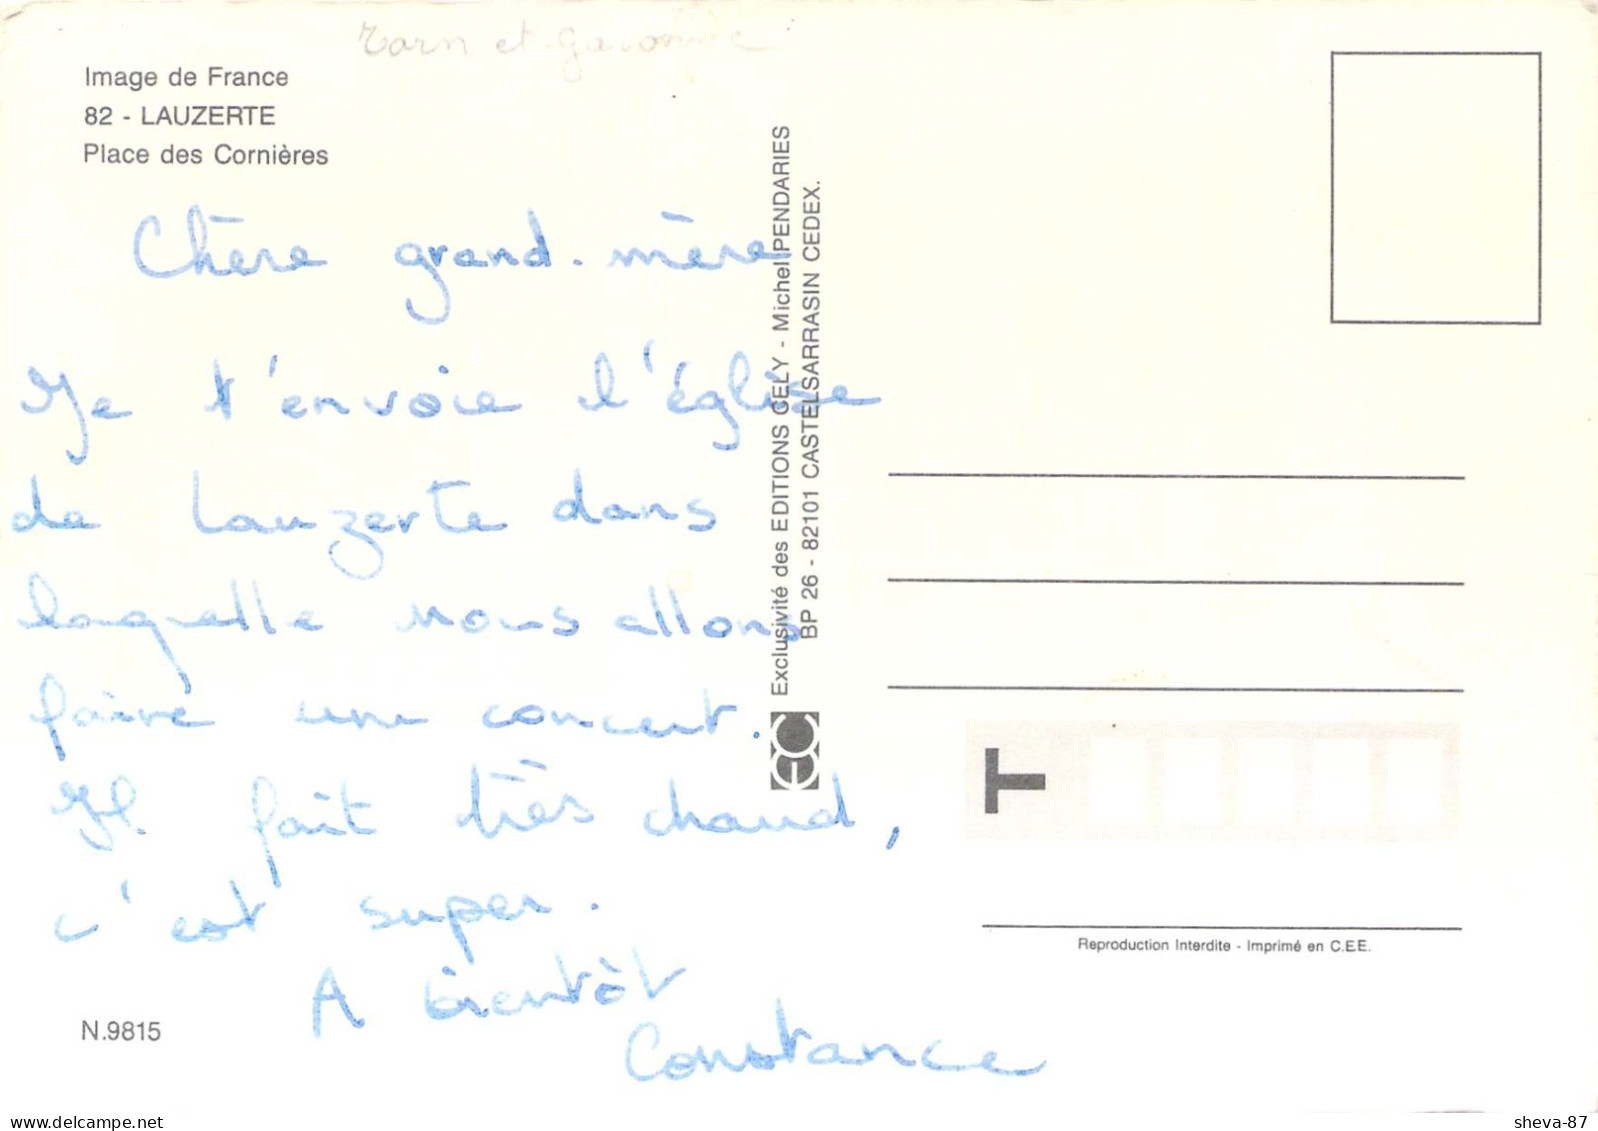 Tarn et Garonne
Image de France
82 - LAUZERTE
Place des Cornières
Chère grand-mère
Je t'envoie l'église
de Lauzerte dans
laquelle nous allons
faire un concert.
Il fait très chaud,
c'est super.
A bientôt
Constance
N.9815
Exclusivité des EDITIONS GELY - Michel PENDARIES
BP 26 - 82101 CASTELSARRASIN CEDEX.
EC
T
Reproduction Interdite - Imprimé en C.E.E.
sheva-87